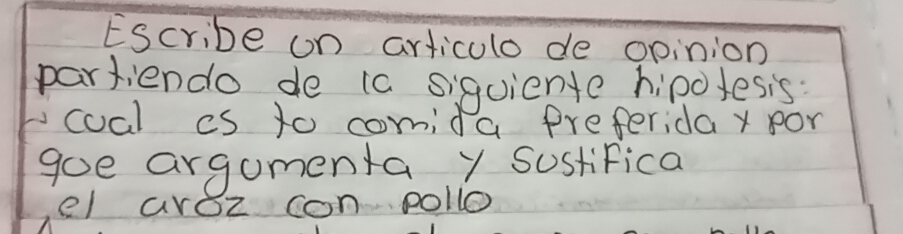 Escribe un articulo de opinion
partiendo de la siguiente hipotesis:
cual es tu comida preferida y por
que argumenta y sustifica
el aroz con pollo